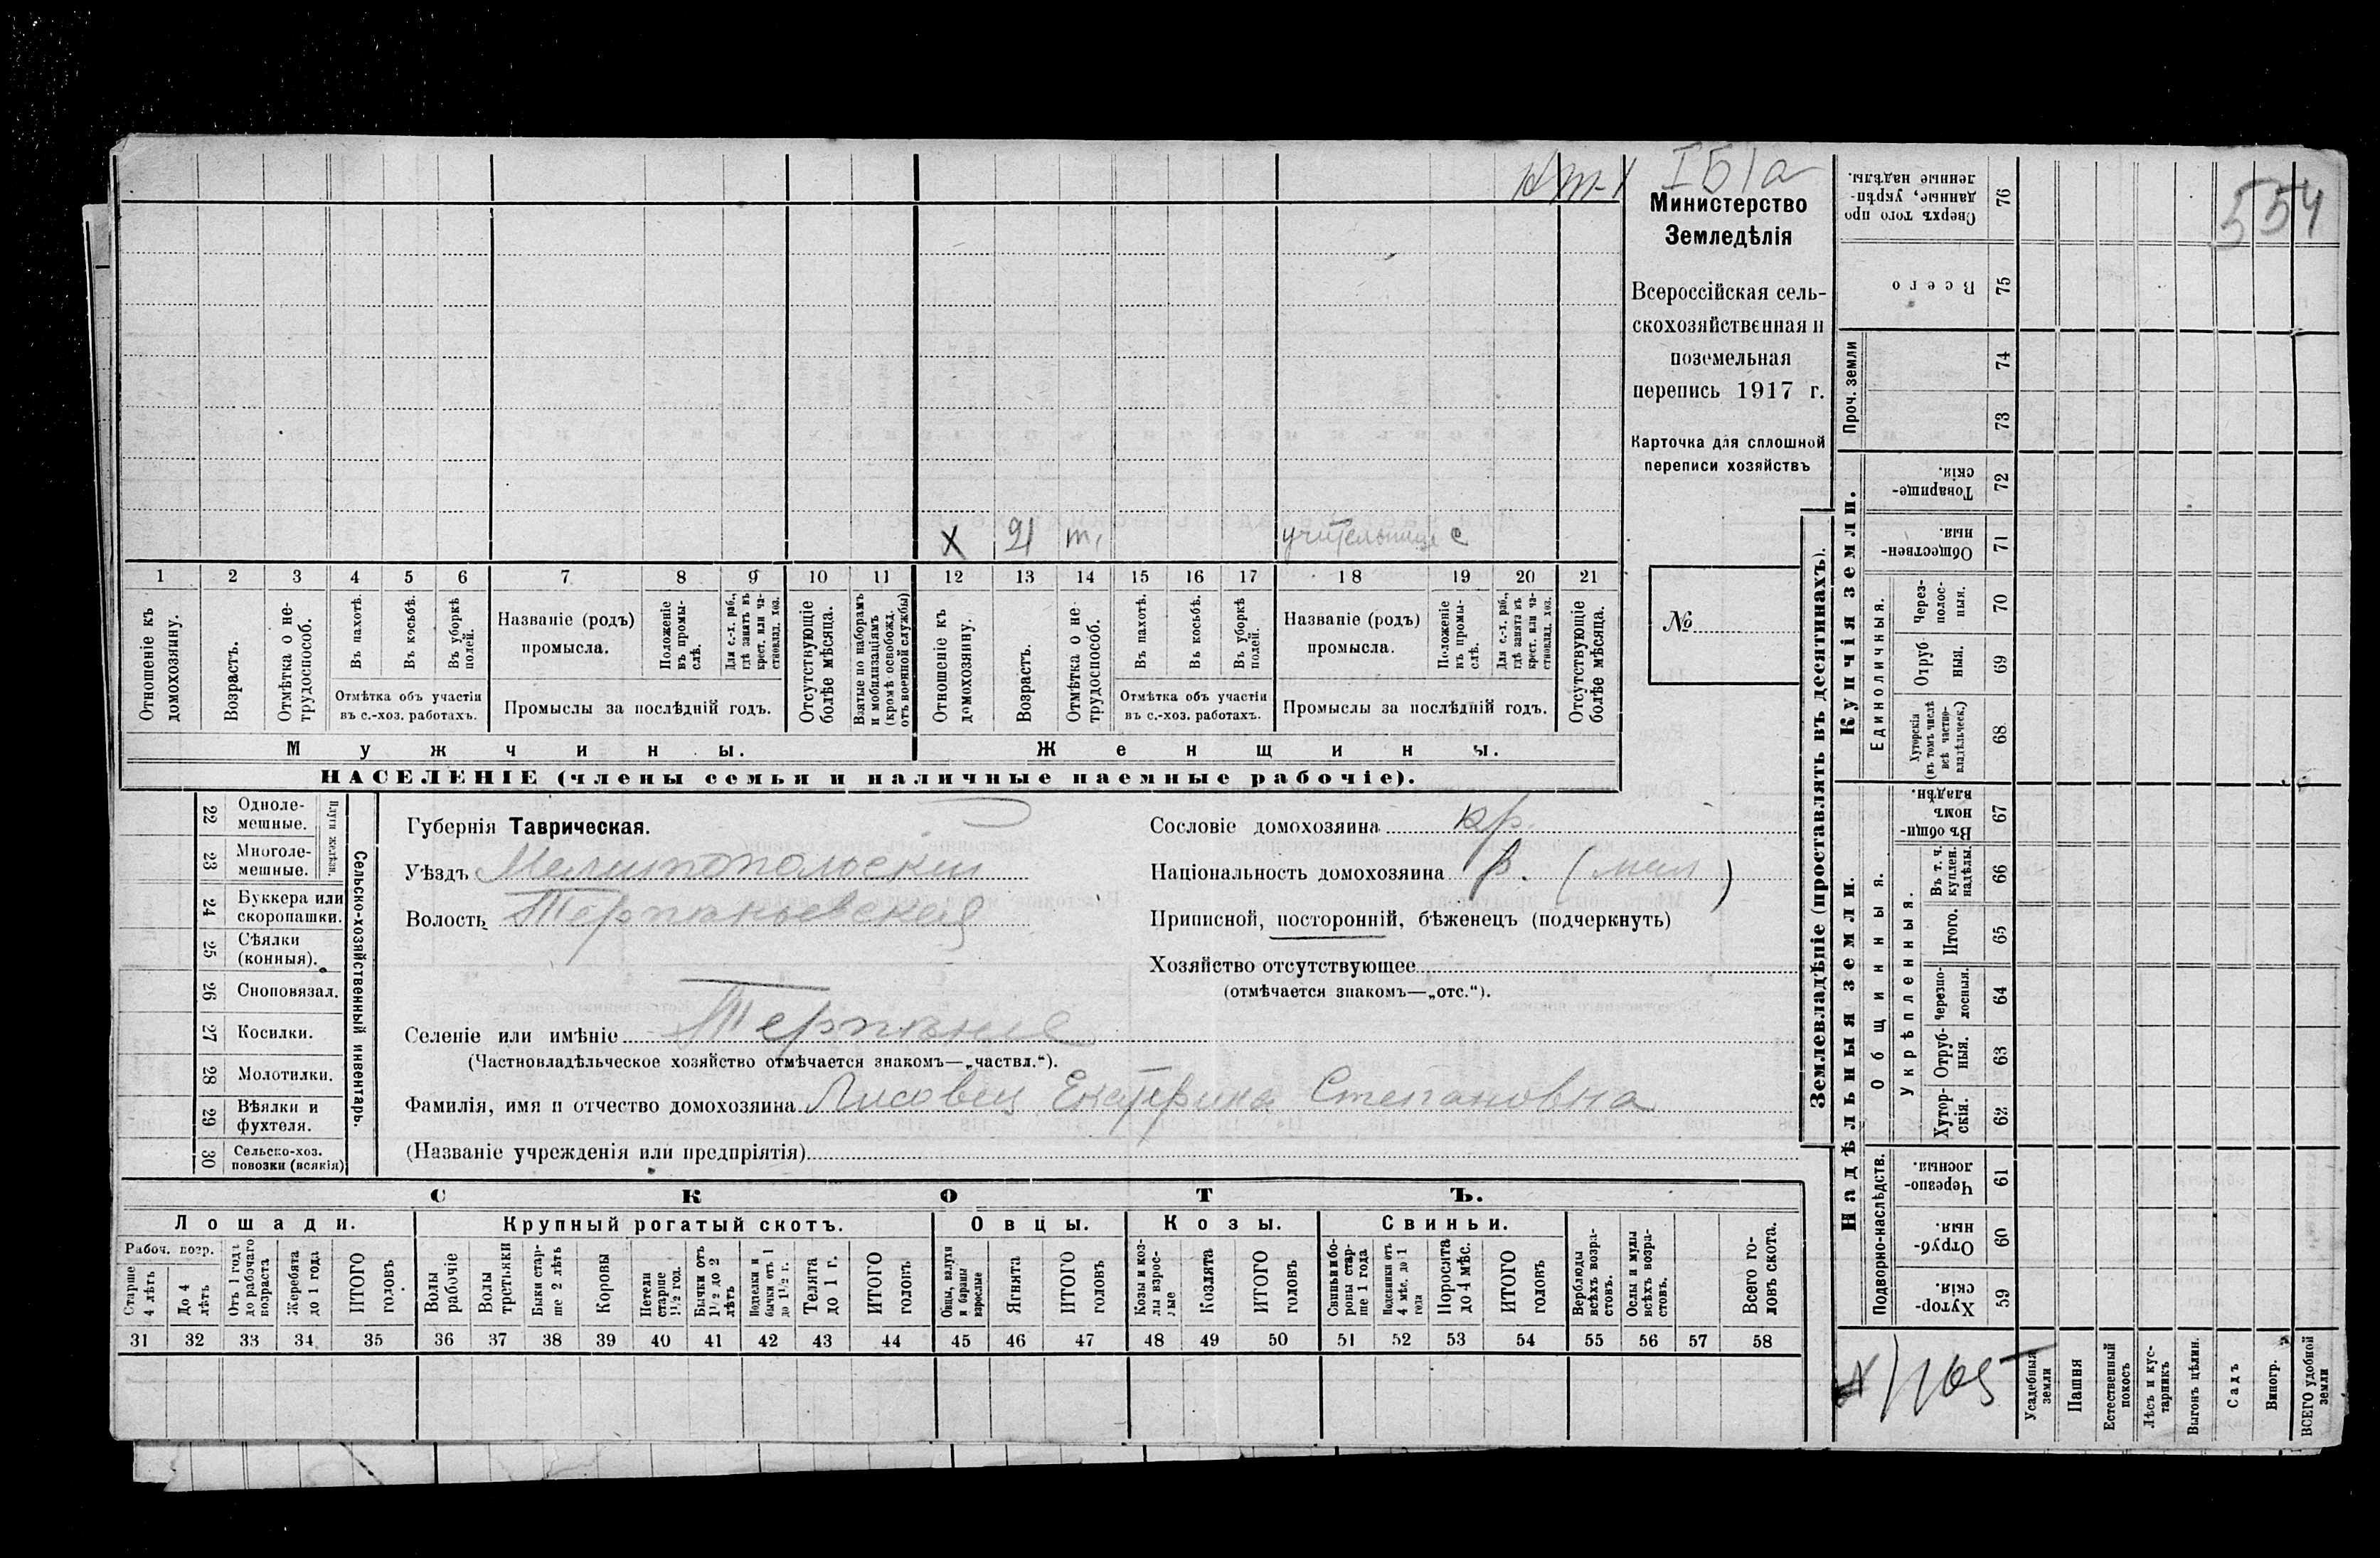 ІБ1а
554
Министерство
Земледѣлія
Всероссійская сель-
скохозяйственная и
поземельная
перепись 1917 г.
Карточка для сплошной
переписи хозяйствъ
№
X 21 учительница с
1 2 3 4 5 6 7 8 9 10 11 12 13 14 15 16 17 18 19 20 21
Отношеніе къ домохозяину.
Возрастъ.
Отмѣтка о не-трудоспособ.
Въ пахотѣ.
Въ косьбѣ.
Въ уборкѣ полей.
Отмѣтка объ участіи
въ с.-хоз. работахъ.
Названіе (родъ)
промысла.
Положеніе въ промы-слѣ.
Для с.-х. раб., гдѣ занятъ въ крест. или ча-стновлад. хоз.
Промыслы за послѣдній годъ.
Отсутствующіе болѣе мѣсяца.
Взятые по наборамъ и мобилизаціямъ (кромѣ освобожд. отъ военной службы)
Отношеніе къ домохозяину.
Возрастъ.
Отмѣтка о не-трудоспособ.
Въ пахотѣ.
Въ косьбѣ.
Въ уборкѣ полей.
Отмѣтка объ участіи
въ с.-хоз. работахъ.
Названіе (родъ)
промысла.
Положеніе въ промы-слѣ.
Для с.-х. раб., гдѣ занята въ крест. или ча-стновлад. хоз.
Промыслы за послѣдній годъ.
Отсутствующіе болѣе мѣсяца.
Мужчины. Женщины.
НАСЕЛЕНІЕ (члены семьи и наличные наемные рабочіе).
22 Одноле-мешные.
23 Многоле-мешные.
Плуги желѣзн.
24 Буккера или скоропашки.
25 Сѣялки (конныя).
26 Сноповязал.
27 Косилки.
28 Молотилки.
29 Вѣялки и фухтеля.
30 Сельско-хоз. повозки (всякія)
Сельско-хозяйственный инвентарь.
Губернія Таврическая.
Уѣздъ Мелитопольскій
Волость Терпѣньевская
Селеніе или имѣніе Терпѣніе
(Частновладѣльческое хозяйство отмѣчается знакомъ—„частвл.“).
Фамилія, имя и отчество домохозяина Лисовец Екатерина Степановна
(Названіе учрежденія или предпріятія)
Сословіе домохозяина кр.
Національность домохозяина р. (мал)
Приписной, посторонній, бѣженецъ (подчеркнуть)
Хозяйство отсутствующее
(отмѣчается знакомъ—„отс.“).
СКОТЪ.
Лошади. Крупный рогатый скотъ. Овцы. Козы. Свиньи.
Рабоч. возр.
Старше 4 лѣтъ
До 4 лѣтъ
Отъ 1 года до рабочаго возраста
Жеребята до 1 года
ИТОГО головъ
Волы рабочіе
Волы третьяки
Быки стар-ше 2 лѣтъ
Коровы
Нетели старше 1½ год.
Бычки отъ 1½ до 2 лѣтъ
Подтелки и бычки отъ 1 до 1½ г.
Телята до 1 г.
ИТОГО головъ
Овцы, валухи и бараны взрослые
Ягнята
ИТОГО головъ
Козы и коз-лы взрос-лые
Козлята
ИТОГО головъ
Свиньи и бо-ровы стар-ше 1 года
Подсвинки отъ 4 мѣс. до 1 года
Поросята до 4 мѣс.
ИТОГО головъ
Верблюды всѣхъ возра-стовъ.
Ослы и мулы всѣхъ возра-стовъ.
Всего го-ловъ скота.
31 32 33 34 35 36 37 38 39 40 41 42 43 44 45 46 47 48 49 50 51 52 53 54 55 56 57 58
Землевладѣніе (проставлять въ десятинахъ).
Сверхъ того про данные, укрѣп-ленные надѣлы. 76
Всего 75
Проч. земли 74 73
Купчія земли.
Товарище-скія. 72
Обществен-ныя. 71
Единоличныя.
Через-полос-ныя. 70
Отруб-ныя. 69
Хуторскія (въ томъ числѣ всѣ частно-владѣльческ.) 68
Надѣльныя земли.
Общинныя.
Въ общи-номъ владѣн. 67
Укрѣпленныя.
Въ т. ч. куплен. надѣлы. 66
Итого. 65
Черезпо-лосныя. 64
Отруб-ныя. 63
Хутор-скія. 62
Подворно-наслѣдств.
Черезпо-лосныя. 61
Отруб-ныя. 60
Хутор-скія. 59
Усадебныя земли
Пашня
Естественный покосъ
Лѣсъ и кус-тарникъ
Выгонъ цѣлин.
Садъ
Виногр.
ВСЕГО удобной земли